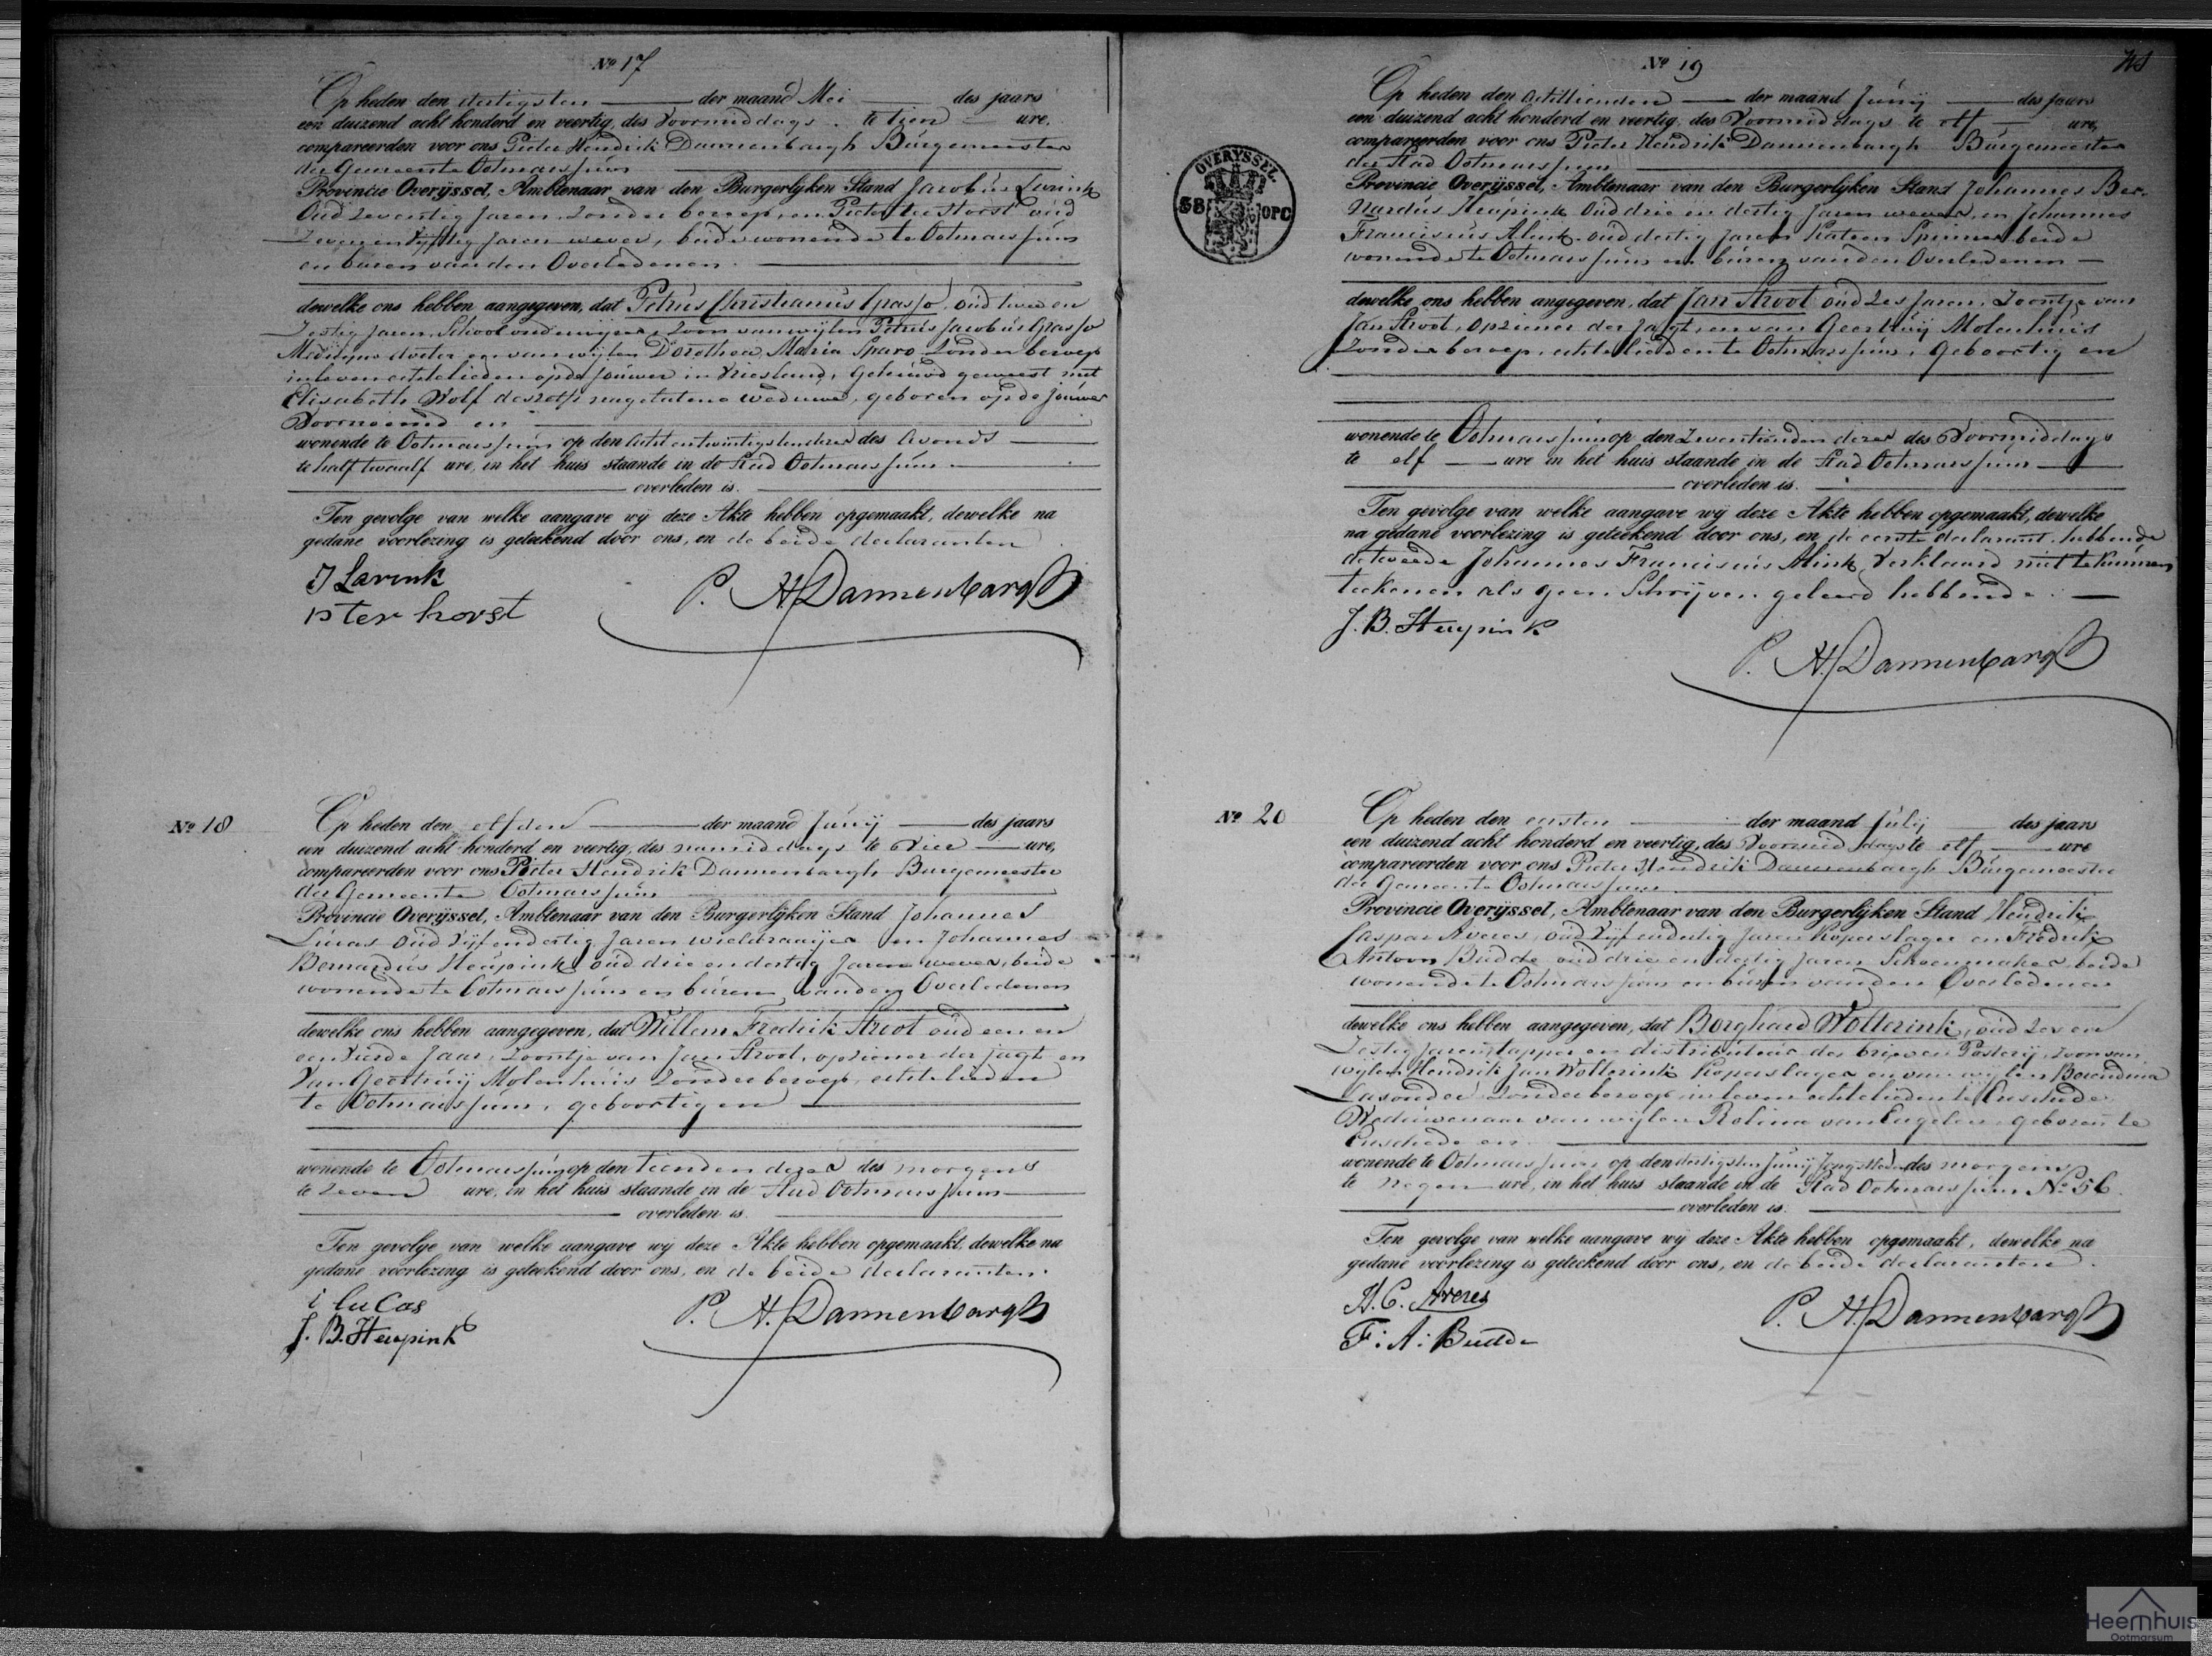 Nº 17
Op heden den dertigsten der maand Mei des jaars
een duizend acht honderd en veertig, des Voormiddags te tien ure,
compareerden voor ons Pieter Hendrik Dannenbargh Burgemeester
der Gemeente Ootmarssum
Provincie Overijssel, Ambtenaar van den Burgerlijken Stand Jacobus Lavink
Oud zeventig Jaren, zonder beroep, en Pieter ter Horst oud
Zeven en vyftig Jaren wever, beide wonende te Ootmarssum
en buren van den Overledenen
dewelke ons hebben aangegeven, dat Petrus Christianus Grasso, oud twee en
Zestig Jaren, Schoolonderwijzer, Zoon van wijlen Petrus Jacobus Grasso
Medicyne doctor en van wijlen Dorothea Maria Sparo Zonder beroep
in leven echtelieden op de Jouwer in Vriesland, Gehuwd geweest met
Elisabeth Wolf deszelfs nagelatene weduwe, geboren op de Jouwer
Voornoemd en
wonende te Ootmarssum op den acht en twintigsten dezer des Avonds
te half twaalf ure, in het huis staande in de Stad Ootmarssum
overleden is.
Ten gevolge van welke aangave wy deze Akte hebben opgemaakt, dewelke na
gedane voorlezing is geteekend door ons, en de beide declaranten
J Lavink
P ter horst
P. H. Dannenbargh
Nº 18
Op heden den elfden der maand Junij des jaars
een duizend acht honderd en veertig, des namiddags te Vier ure,
compareerden voor ons Pieter Hendrik Dannenbargh Burgemeester
der Gemeente Ootmarssum
Provincie Overijssel, Ambtenaar van den Burgerlijken Stand Johannes
Lucas oud Vijf en dertig Jaren wieldraaijer en Johannes
Bernardus Heupink oud drie en dertig Jaren wever, beide
wonende te Ootmarssum en buren van den Overledenen
dewelke ons hebben aangegeven, dat Willem Fredrik Stroot oud een en
een vierde Jaar, Zoontje van Jan Stroot, opziener der jagt en
Van Geertruij Molenhuis Zonder beroep, echtelieden
te Ootmarssum, geboortig en
wonende te Ootmarssum op den tienden dezer des morgens
te zeven ure, in het huis staande in de Stad Ootmarssum
overleden is.
Ten gevolge van welke aangave wy deze Akte hebben opgemaakt, dewelke na
gedane voorlezing is geteekend door ons, en de beide declaranten.
i luCas
J. B. Heupink
P. H. Dannenbargh
Nº 19
OVERYSSEL.
38 OPC
Op heden den Achttienden der maand Junij des jaars
een duizend acht honderd en veertig, des Voormiddags te elf ure,
compareerden voor ons Pieter Hendrik Dannenbargh Burgemeester
der Stad Ootmarssum
Provincie Overijssel, Ambtenaar van den Burgerlijken Stand Johannes Ber-
nardus Heupink Oud drie en dertig Jaren wever, en Johannes
Franciscus Alink oud dertig Jaren Katoen Spinner beide
wonende te Ootmarssum en buren van den Overledenen
dewelke ons hebben angegeven, dat Jan Stroot oud zes Jaren, Zoontje van
Jan Stroot, Opziener der Jagt, en van Geertruij Molenhuis
Zonder beroep, echtelieden te Ootmarssum, Geboortig en
wonende te Ootmarssum op den Zeventienden dezer des Voormiddags
te elf ure in het huis staande in de Stad Ootmarssum
overleden is.
Ten gevolge van welke aangave wy deze Akte hebben opgemaakt, dewelke
na gedane voorlezing is geteekend door ons, en de eerste declarant hebbende
de tweede Johannes Franciscus Alink Verklaard niet te kunnen
teekenen als geen Schrijven geleerd hebbende.
J. B. Heupink
P. H. Dannenbargh
Nº 20
Op heden den eersten der maand Julij des jaars
een duizend acht honderd en veertig, des Voormiddags te elf ure
compareerden voor ons Pieter Hendrik Dannenbargh Burgemeester
der Gemeente Ootmarssum
Provincie Overijssel, Ambtenaar van den Burgerlijken Stand Hendrik
Caspar Averes, oud Vijf en dertig Jaren Koperslager en Fredrik
Antoon Budde oud drie en dertig Jaren Schoenmaker, beide
wonende te Ootmarssum en buren van den Overledenen
dewelke ons hebben aangegeven, dat Borghard Wolterink, oud zes en
Zestig Jaren, tapper en distributeur der brieven Posterij, Zoon van
wijlen Hendrik Jan Wolterink Koperslager en van wijlen Berendina
Lasonder Zonder beroep in leven echtelieden te Enschede
Weduwenaar van wijlen Rolina van Engelen, geboren te
Enschede en
wonende te Ootmarssum op den dertigsten Junij Jongstleden des morgens
te negen ure, in het huis staande in de Stad Ootmarssum Nº 56.
overleden is.
Ten gevolge van welke aangave wy deze Akte hebben opgemaakt, dewelke na
gedane voorlezing is geteekend door ons, en de beide declaranten.
H. C. Averes
F: A: Budde
P. H. Dannenbargh
Heemhuis
Ootmarsum